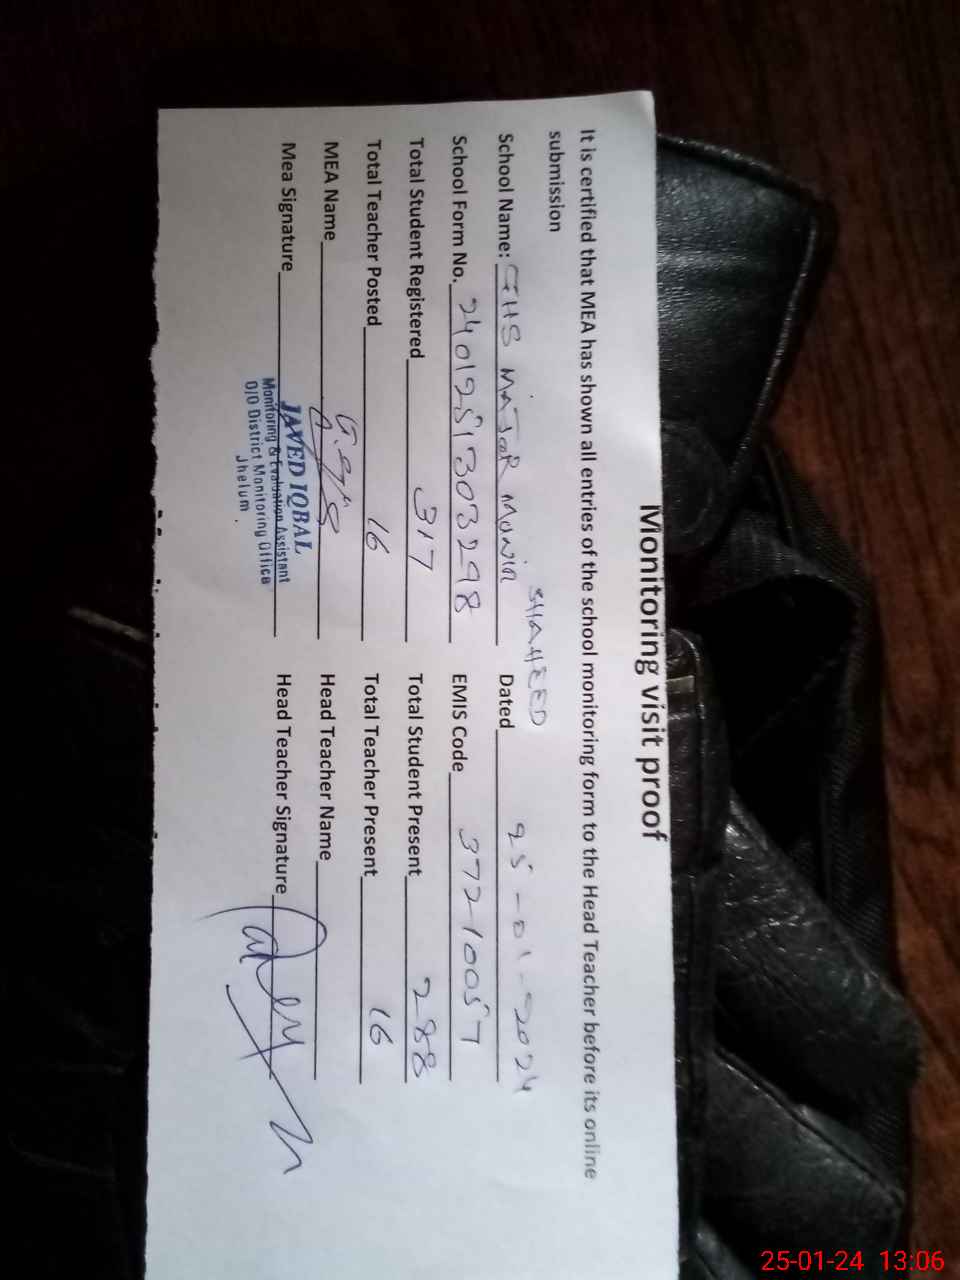 Monitoring visit proof
It is certified that MEA has shown all entries of the school monitoring form to the Head Teacher before its online
submission
SHAHEED
School Name: GHS MAJOR MUNIR Dated 25-01-2024
School Form No. 2401251303298 EMIS Code 37210057
Total Student Registered 317 Total Student Present 288
Total Teacher Posted 16 Total Teacher Present 16
MEA Name Head Teacher Name
Mea Signature Head Teacher Signature
JAVED IQBAL
Monitoring & Evaluation Assistant
O/O District Monitoring Office
Jhelum
25-01-24 13:06